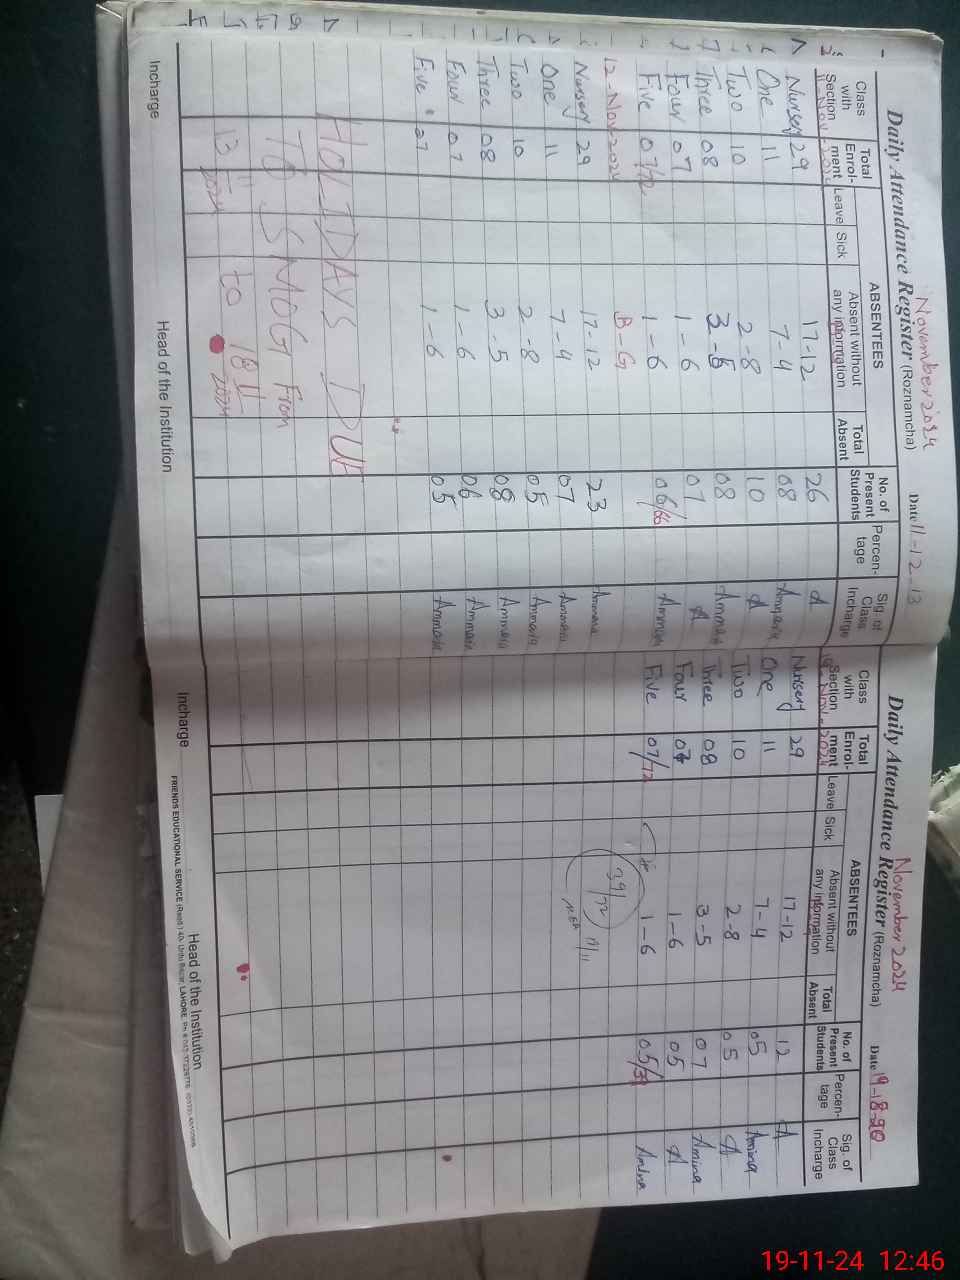 November 2024
Daily Attendance Register (Roznamcha) Date 11-12-13
Class with Section
Total Enrol-ment
ABSENTEES
Leave
Sick
Absent without any information
Total Absent
No. of Present Students
Percen-tage
Sig. of Class Incharge
11-Nov-2024
Nursery 29 17-12 26 A
One 11 7-4 08 Ammara
Two 10 2-8 10 A
Three 08 3-5 08 Ammara
Four 07 1-6 07 A
Five 07/72 1-6 06/66 Ammara
12-Nov 2024 B-G
Nursery 29 17-12 23 Ammara
One 11 7-4 07 Ammara
Two 10 2-8 05 Ammara
Three 08 3-5 08 Ammara
Four 07 1-6 06 Ammara
Five 27 1-6 05 Ammara
HOLIDAYS DUE
TO SMOG From
13 11 2024 to 18 11 2024
Incharge
Head of the Institution
November 2024
Daily Attendance Register (Roznamcha) Date 19-18-20
Class with Section
Total Enrol-ment
ABSENTEES
Leave
Sick
Absent without any information
Total Absent
No. of Present Students
Percen-tage
Sig. of Class Incharge
19-Nov-2024
Nursery 29 17-12 12 A
One 11 7-4 05 Amina
Two 10 2-8 05 A
Three 08 3-5 07 Amina
Four 07 1-6 05 A
Five 07/72 1-6 05/39 Amina
39/72
Incharge
Head of the Institution
FRIENDS EDUCATIONAL SERVICE (Regd.) 40- Urdu Bazar, LAHORE.
19-11-24 12:46